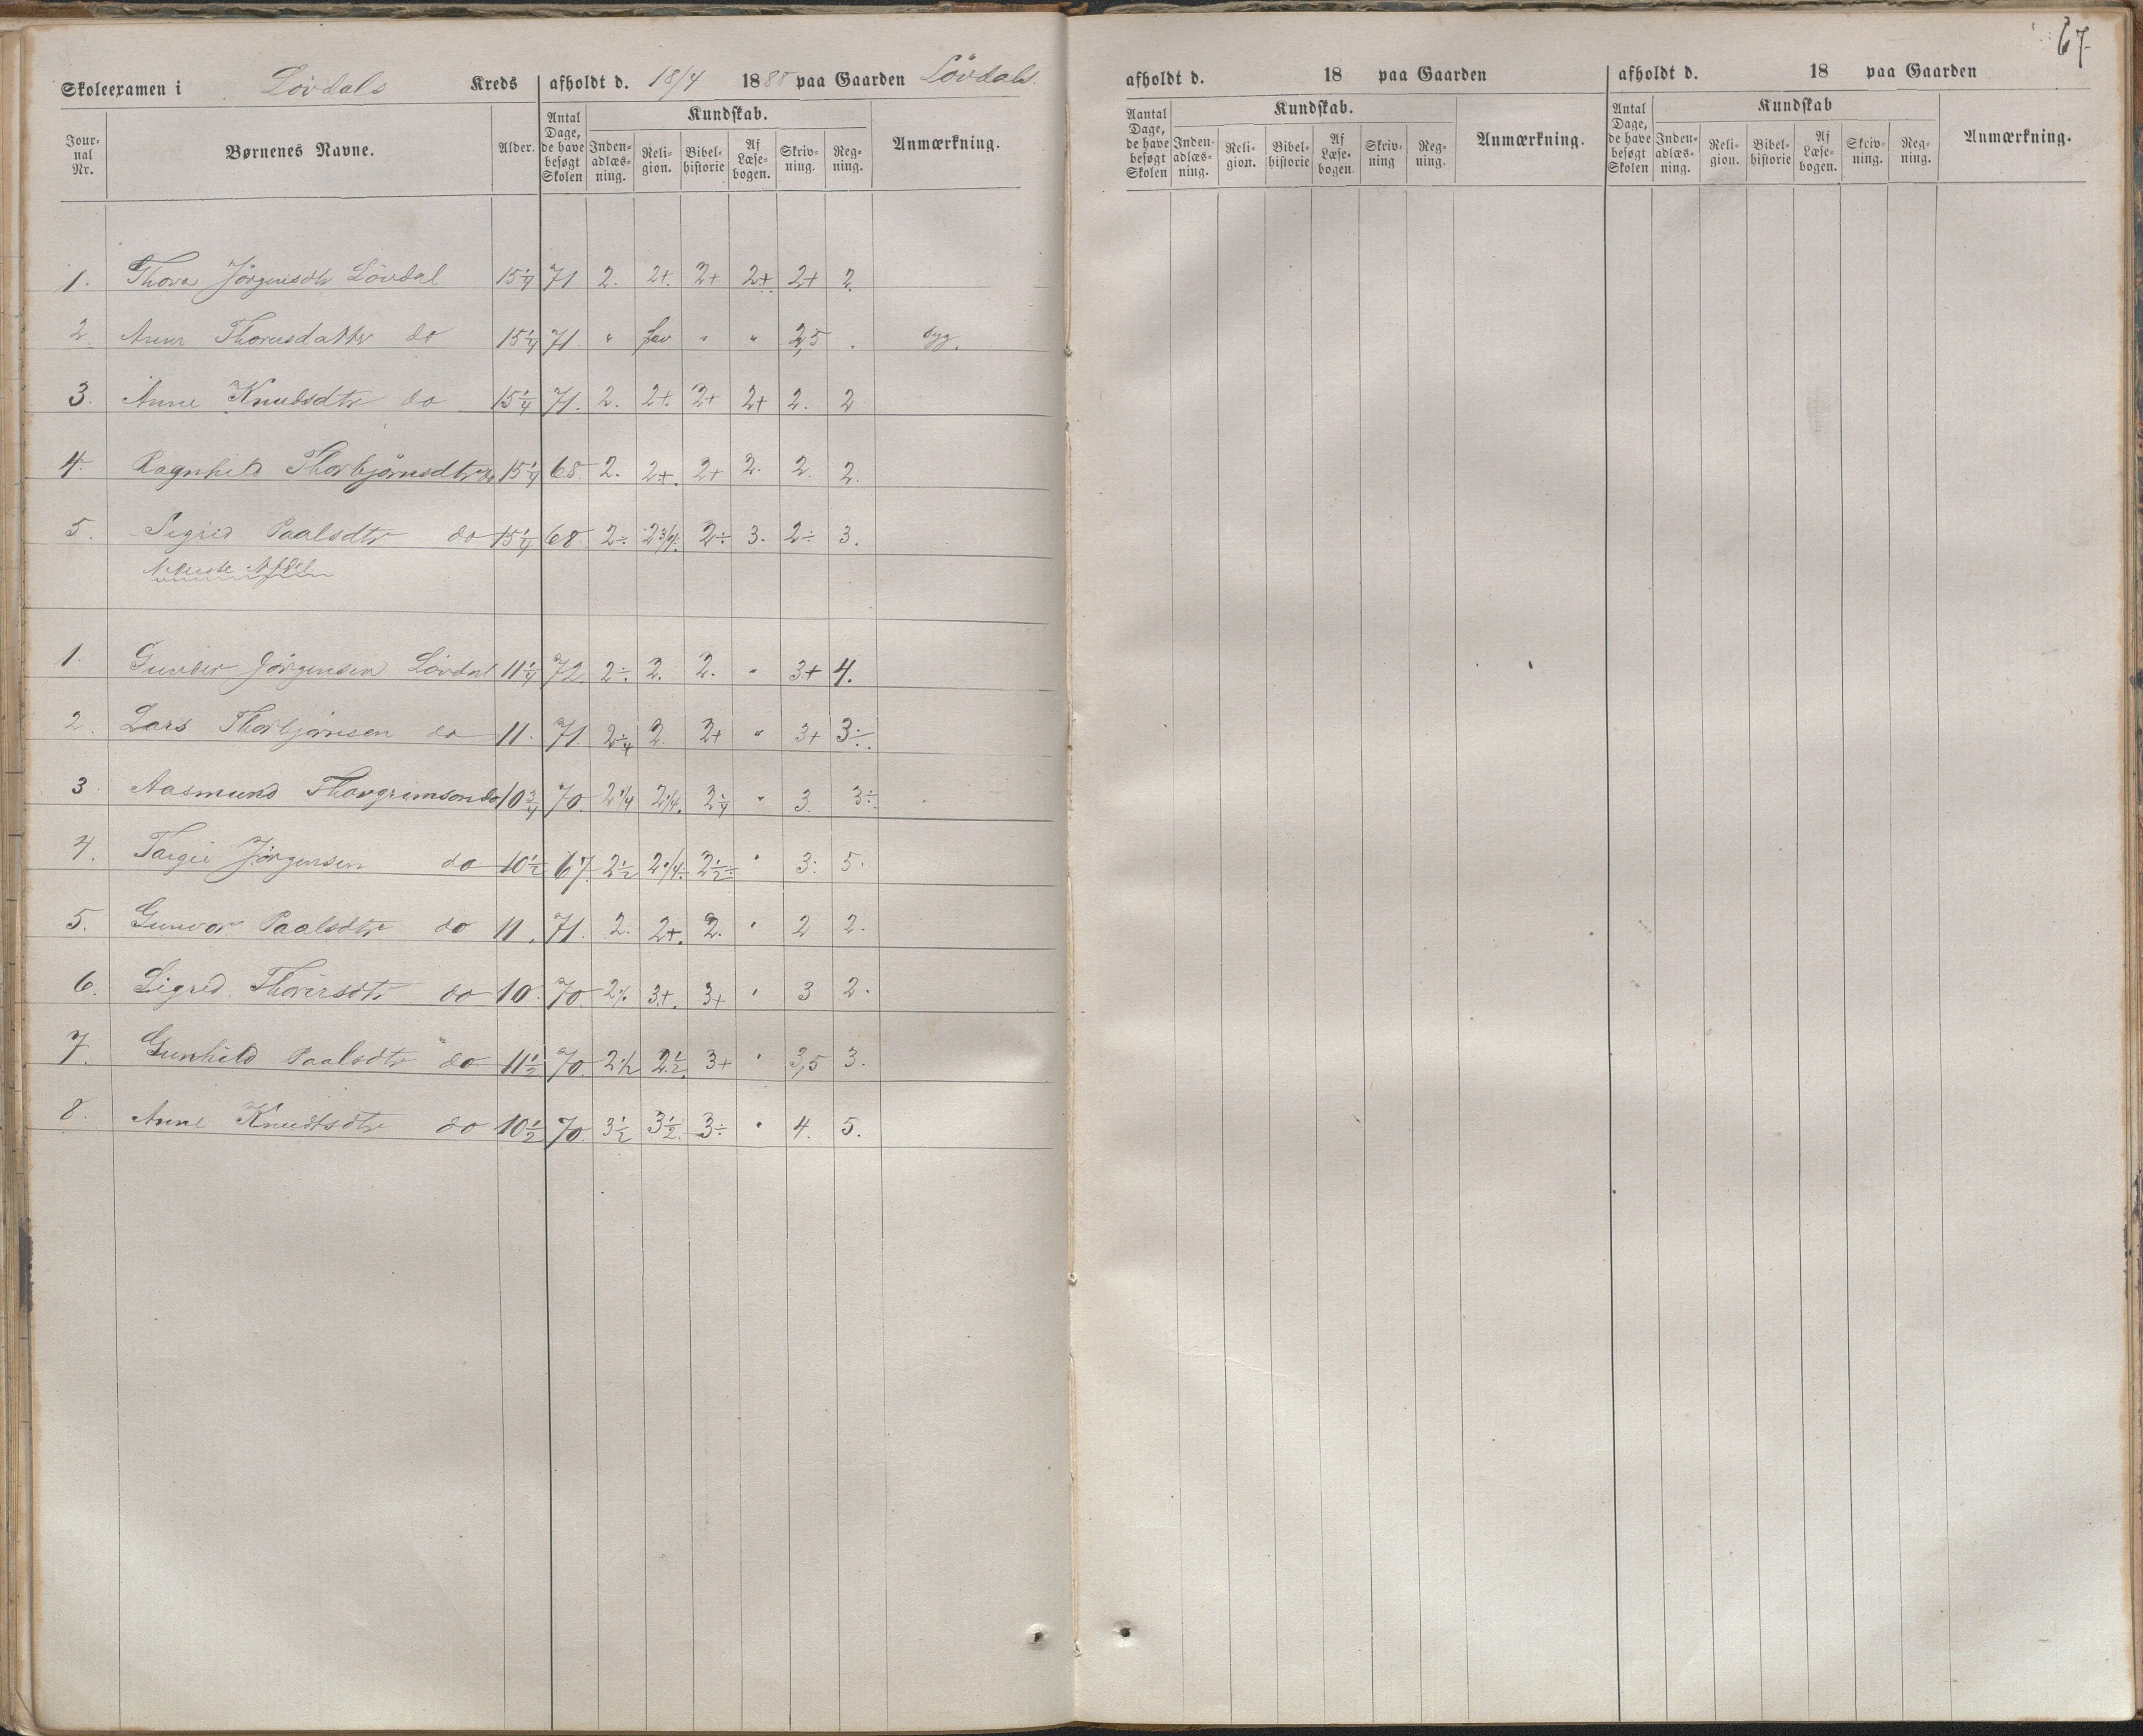 67
Skoleexamen i Lövdals Kreds afholdt d. 18/4 1888 paa Gaarden Lövdal
Jour-nal Nr. Børnenes Navne. Alder. Antal Dage, de have besøgt Skolen Kundskab. Inden-adlæs-ning. Reli-gion. Bibel-historie Af Læse-bogen. Skriv-ning. Reg-ning. Anmærkning.
1. Thora Jörgensdtr Lövdal 15 1/4 71 2. 2+. 2+ 2+. 2+ 2.
2. Anne do 15 1/4 71. " " " 2,5 . syg.
3. Anne Knudsdtr do 15 1/4 71. 2. 2+. 2+ 2+ 2. 2
4. Ragnhild Thorbjörnsdtr do 15 1/4 68. 2. 2+. 2+ 2. 2. 2.
5. Sigrid Paalsdtr do 15 1/4 68 2÷ 2 3/4. 2÷ 3. 2÷ 3.
1. Gunder Jörgensen Lövdal 11 1/4 72. 2÷. 2. 2. " 3+ 4.
2. Lars Thorbjörnsen do 11. 71. 2 1/4 2. 2+ " 3+ 3÷.
3 Aasmund Thorgrimsen do 10 3/4 70. 2 1/4 2 1/4. 2 1/4 " 3. 3÷.
4. Targei Jörgensen do 10 1/2 67. 2 1/2 2 1/4÷ 2 1/2÷ " 3. 5.
5. Gunvor Paalsdtr do 11. 71. 2. 2+. 2. " 2 2.
6. Sigrid do 10. 70. 3+. 3+ " 3 2.
7. Gunhild Paalsdtr do 11 1/2 70. 2 1/2 2 1/2. 3+ " 3,5 3.
8. Anne Knudtsdtr do 10 1/2 70. 3 1/2 3 1/2. 3÷ " 4. 5.
afholdt d. 18 paa Gaarden
Aantal Dage, de have besøgt Skolen Kundskab. Inden-adlæs-ning. Reli-gion. Bibel-historie Af Læse-bogen. Skriv-ning Reg-ning. Anmærkning.
afholdt d. 18 paa Gaarden
Antal Dage, de have besøgt Skolen Kundskab Inden-adlæs-ning. Reli-gion. Bibel-historie Af Læse-bogen. Skriv-ning. Reg-ning. Anmærkning.